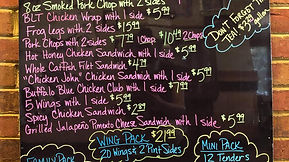 8oz Smoked Pork Chop with 2 sides
BLT Chicken Wrap with 1 side $5.99
Frog legs with 2 sides
Pork Chops with 2 sides $7.99 1 Chop $10.49 2 Chops
Hot Honey Chicken Sandwich with 1 side $5.99
Whole Catfish Filet Sandwich $4.99
"Chicken John" Chicken Sandwich with 1 side $5.99
Buffalo Blue Chicken Club with 1 side $7.99
5 Wings with 1 side $5.99
Spicy Chicken Sandwich
Grilled Jalapeño Pimento Cheese Sandwich with 1 side
Don't Forget
Tea!
WING PACK $21.99
20 Wings & 2 Pint Sides
MINI PACK
12 Tenders
FAMILY PACK